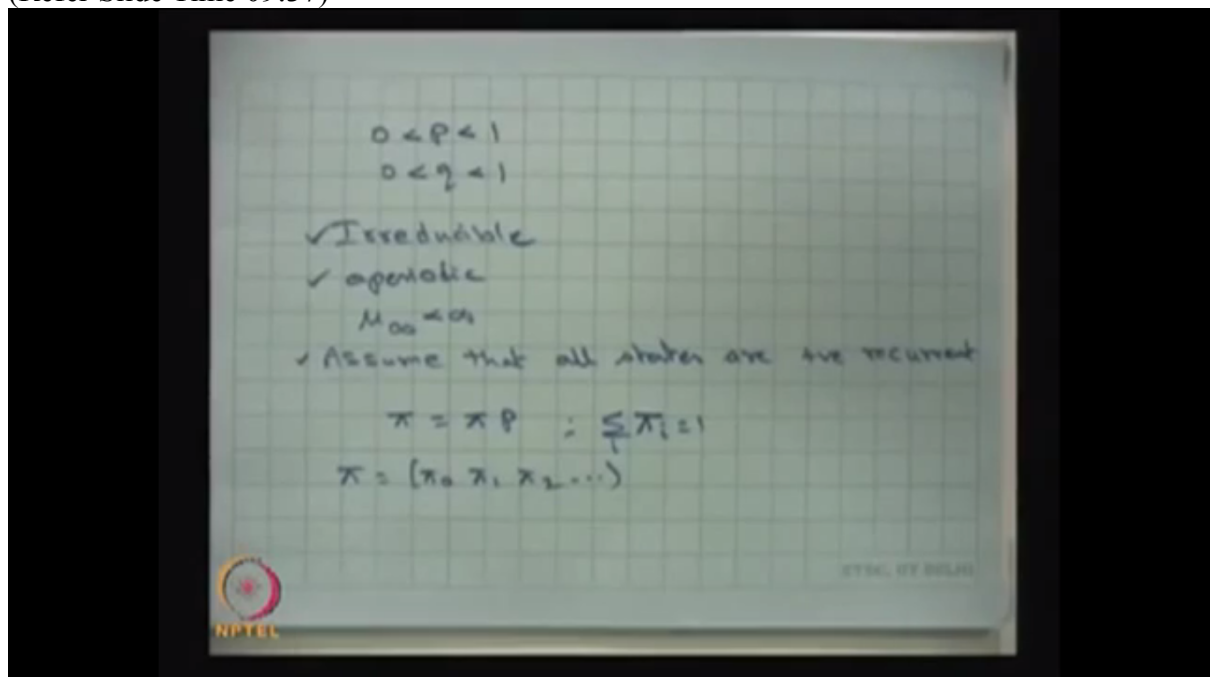 (Refer Slide Time 09:57)
0 < p < 1
0 < q < 1
✓ Irreducible
✓ aperiodic
μ₀₀ < ∞
✓ Assume that all states are +ve recurrent
π = πP ; Σᵢ πᵢ = 1
π = (π₀ π₁ π₂ ...)
NPTEL